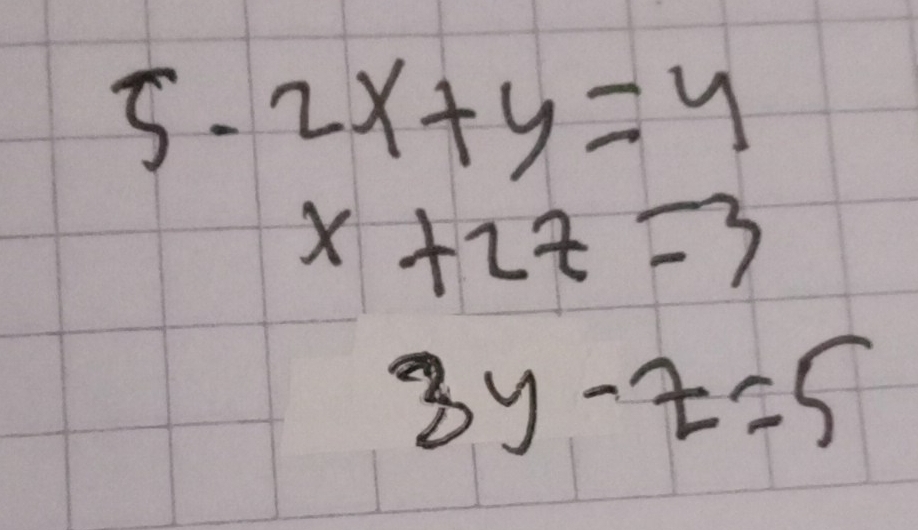 5. 2x + y = 4
x + 2z = 3
3y - z = 5